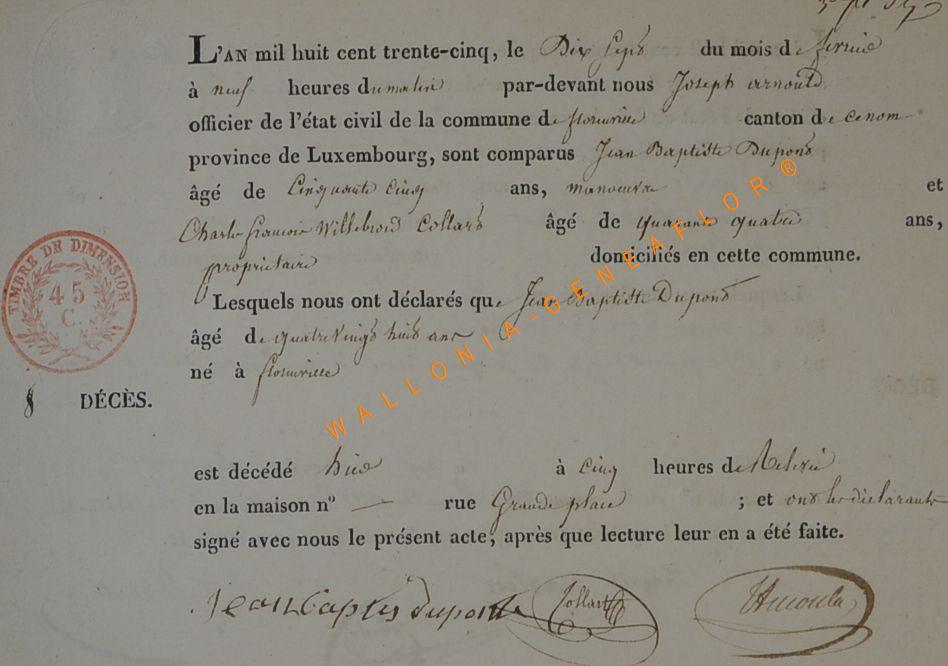 L'AN mil huit cent trente-cinq, le Dix Sept du mois de fevrier
à neuf heures du matin par-devant nous Joseph arnould
officier de l'état civil de la commune de florenville canton de
province de Luxembourg, sont comparus Jean Baptiste Dupont
âgé de Cinquante Cinq ans, manoeuvre et
Charles francois Willebrord Collard âgé de quarante quatre ans,
propriétaire domiciliés en cette commune.
Lesquels nous ont déclarés que Jean Baptiste Dupont
âgé de quatre vingt huit ans
né à florenville
8 DÉCÈS.
est décédé hier à Cinq heures de
en la maison n° — rue Grande place ; et ont les déclarants
signé avec nous le présent acte, après que lecture leur en a été faite.
Jean Baptiste Dupont Collard
TIMBRE DE DIMENSION
45
C.
WALLONIA-GENEAFLOR ®